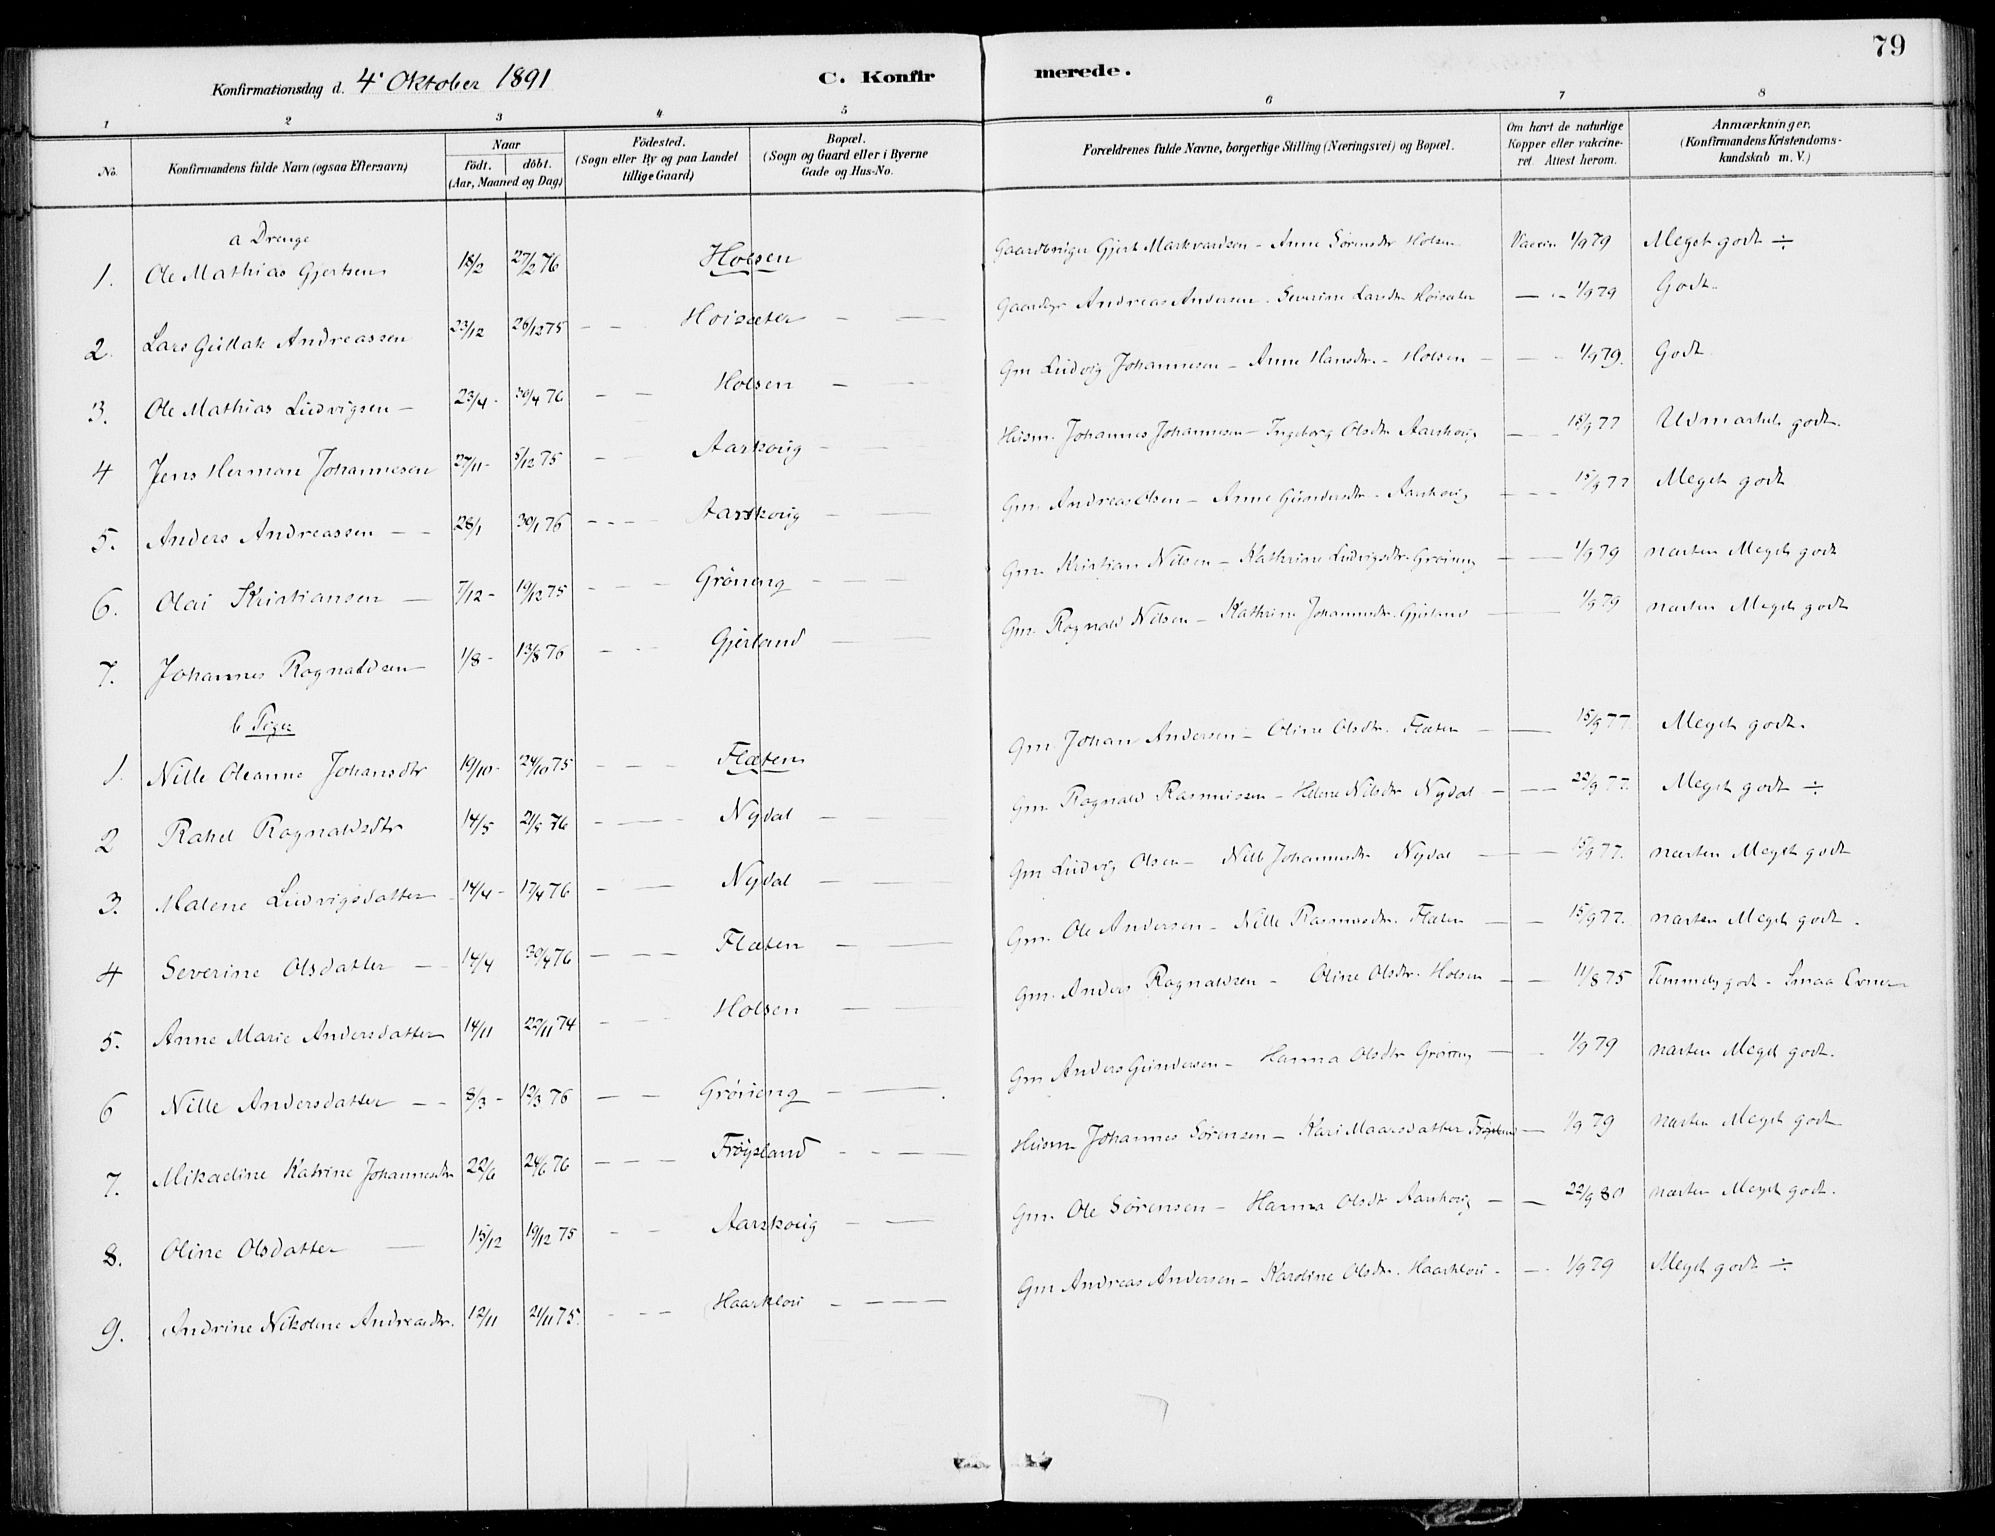 79
Konfirmationsdag d. 4' Oktober 1891 C. Konfirmerede.
1 2 3 4 5 6 7 8
No. Konfirmandens fulde Navn (ogsaa Efternavn) Naar født. døbt. (Aar, Maaned og Dag) Fødested. (Sogn eller By og paa Landet tillige Gaard) Bopæl. (Sogn og Gaard eller i Byerne Gade og Hus-No. Forældrenes fulde Navne, borgerlige Stilling (Næringsvei) og Bopæl. Om havt de naturlige Kopper eller vakcineret. Attest herom. Anmærkninger. (Konfirmandens Kristendomskundskab m. V.)
a Drenge
1. Ole Mathias Gjertsen 18/2 27/2 76 Holsen Gaardbruger Gjert Markvardsen - Anne Sørensdtr Holsen Vaccin 1/9 79 Meget godt ÷
2. Lars Gutlak Andreassen 23/12 26/12 75 - - Hoisæter - - Gaardbgr Andreas Andersen. Severine Larsdtr Hoisæter - " - 1/9 79 Godt.
3. Ole Mathias Ludvigsen - 23/4 - 30/4 76 - - Holsen - - Gm Ludvig Johannesen - Anne Hansdtr. - Holsen - - - 1/9 79. Godt
4 Jens Herman Johannesen 27/11 - 5/12 75 - - Aarskoug - - Husm. Johannes Johannesen - Ingeborg Olsdtr Aarskoug - - 18/9 77 Udmærket godt.
5. Anders Andreassen - - 28/1 30/1 76 - - - - Aarskoug - - Gm. Andreas Olsen - Anne Gundersdtr - Aarskoug - - - 15/9 77 Meget godt
6. Olai Kristiansen - 7/12 - 19/12 75 - - - Grøneng - - - Gm. Kristian Nilsen - Kathrine Ludvigsdtr. Grøneng - - 1/9 79 næsten Meget godt
7. Johannes Ragnaldsen - 1/8 - 13/8 76 - - - Gjerland - - Gm. Ragnald Nilsen - Kathrine Johannesdtr. Gjerland - - 1/9 79 næsten Meget godt
b Piger
1. Nille Oleanna Johansdtr 19/10 - 24/10 75 - - - Flæten Gm. Johan Andersen - Oline Olsdtr. Flæten - - 15/9 77. Meget godt.
2 Rakel Ragnaldsdtr 14/5 21/5 76 - - - Nydal - - Gm. Ragnald Rasmussen - Helene Nilsdtr Nydal - - - 22/9 77. Meget godt ÷
3. Malene Ludvigsdatter - 14/4 - 17/4 76 - - Nydal - - Gm Ludvig Olsen - Nille Johannesdtr Nydal - - 15/9 77. næsten Meget godt
4 Severine Olsdatter - - 14/4 30/4 76 - - - Flæten - - Gm. Ole Andersen - Nille Rasmusdtr. Flæten - - 15/9 77. næsten Meget godt.
5. Anne Marie Andersdatter 14/11 22/11 74 - - - Holsen - - Gm. Anders Ragnaldsen - Oline Olsdtr. Holsen - - 11/8 75 Temmelig godt - Smaa Evner
6 Nille Andersdatter - - 8/3 - 12/3 76 - - Grøneng - - Gm Anders Gundersen - Hanna Olsdtr Grøneng - - 1/9 79 næsten Meget godt.
7. Mikaeline Katrine Johannesdtr 22/6 24/6 76 - - - Frøysland - - - Husm Johannes Sørensen - Kari Maarsdatter Frøysland - 1/9 79 næsten Meget godt
8. Oline Olsdatter - 15/12 19/12 75 - - Aarskoug - - Gm. Ole Sørensen - Hanna Olsdtr Aarskoug - - 22/9 80 næsten Meget godt.
9. Andrine Nikoline Andreasdtr. 12/11 21/11 75. - - - Haarklou - - - - Gm Andreas Andersen - Karoline Olsdtr. Haarklou - - - 1/9 79 Meget godt ÷